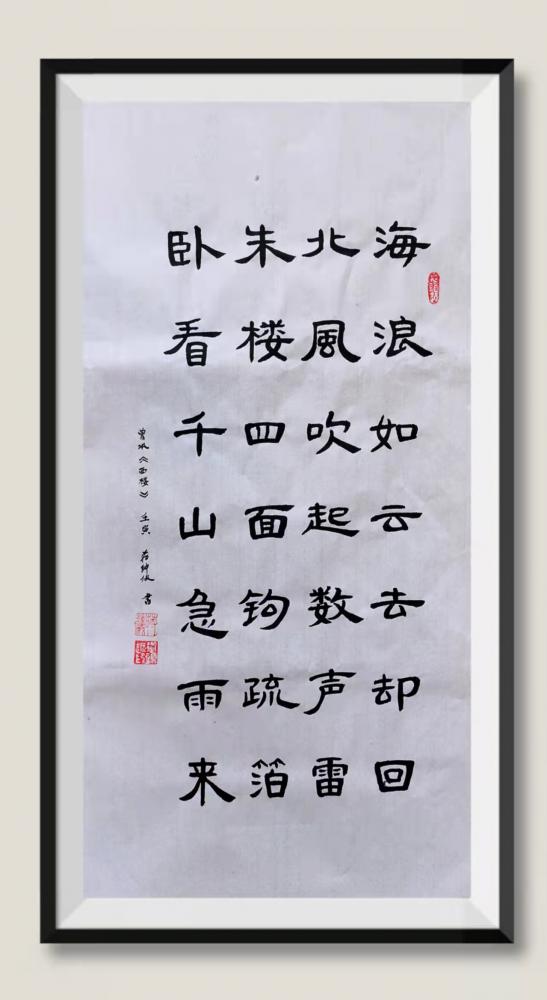 海浪如云去却回
北風吹起数声雷
朱楼四面钩疏箔
卧看千山急雨来
曾巩《西楼》壬寅 书